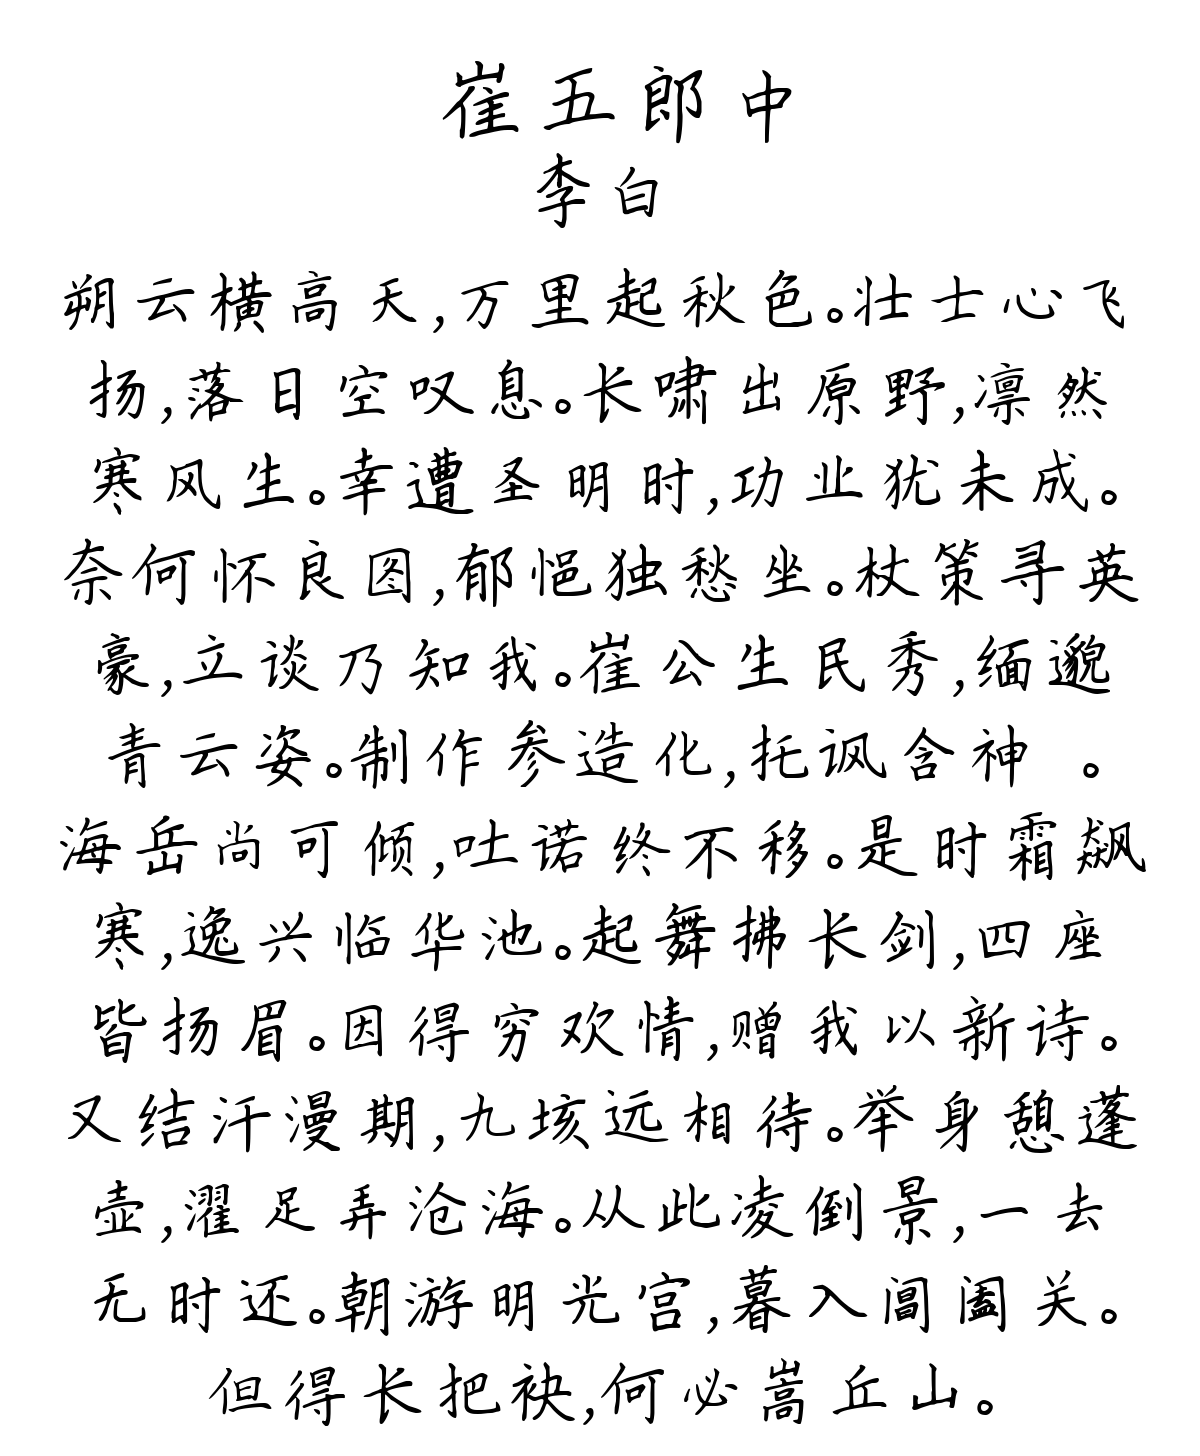 崔五郎中
李白
朔云横高天,万里起秋色。壮士心飞
扬,落日空叹息。长啸出原野,凛然
寒风生。幸遭圣明时,功业犹未成。
奈何怀良图,郁悒独愁坐。杖策寻英
豪,立谈乃知我。崔公生民秀,缅邈
青云姿。制作参造化,托讽含神 。
海岳尚可倾,吐诺终不移。是时霜飙
寒,逸兴临华池。起舞拂长剑,四座
皆扬眉。因得穷欢情,赠我以新诗。
又结汗漫期,九垓远相待。举身憩蓬
壶,濯足弄沧海。从此凌倒景,一去
无时还。朝游明光宫,暮入阊阖关。
但得长把袂,何必嵩丘山。